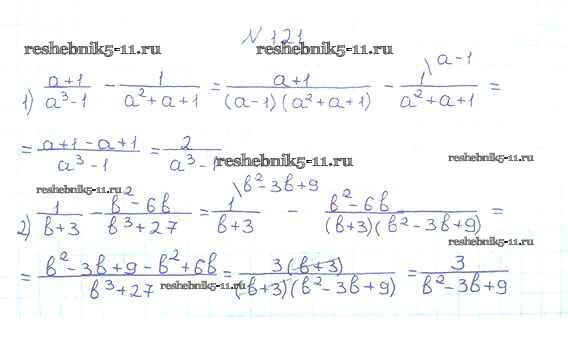 N 121
reshebnik5-11.ru reshebnik5-11.ru
1) (a+1)/(a³-1) - 1/(a²+a+1) = (a+1)/((a-1)(a²+a+1)) - 1\a-1/(a²+a+1) =
= (a+1-a+1)/(a³-1) = 2/(a³-1)
reshebnik5-11.ru reshebnik5-11.ru
reshebnik5-11.ru
2) 1/(b+3) - (b²-6b)/(b³+27) = 1\b²-3b+9/(b+3) - (b²-6b)/((b+3)(b²-3b+9)) =
reshebnik5-11.ru
= (b²-3b+9-b²+6b)/(b³+27) = 3(b+3)/((b+3)(b²-3b+9)) = 3/(b²-3b+9)
reshebnik5-11.ru reshebnik5-11.ru